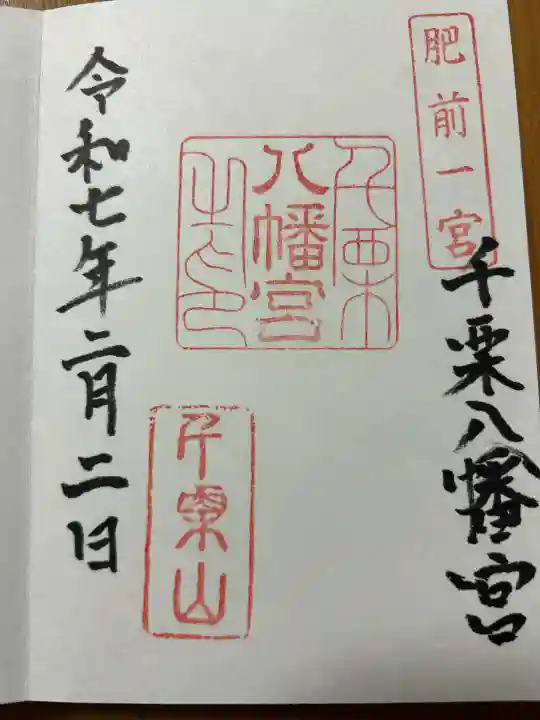 肥前一宮
千栗八幡宮
千栗
八幡宮
之印
千栗山
令和七年二月二日